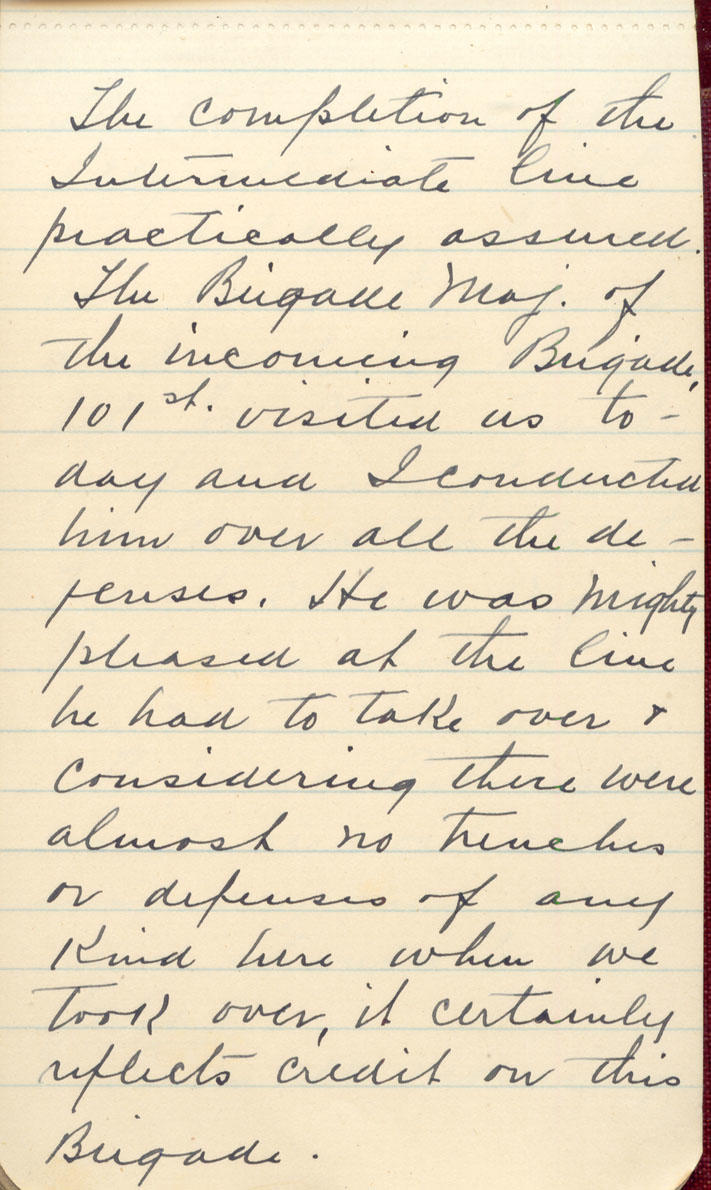 The completion of the
Intermediate line
practically assured.
The Brigade Maj. of
the incoming Brigade,
101st. visited us to-
day and I conducted
him over all the de-
fenses. He was mighty
pleased at the line
he had to take over &
considering there were
almost no trenches
or defenses of any
Kind here when we
took over, it certainly
reflects credit on this
Brigade.